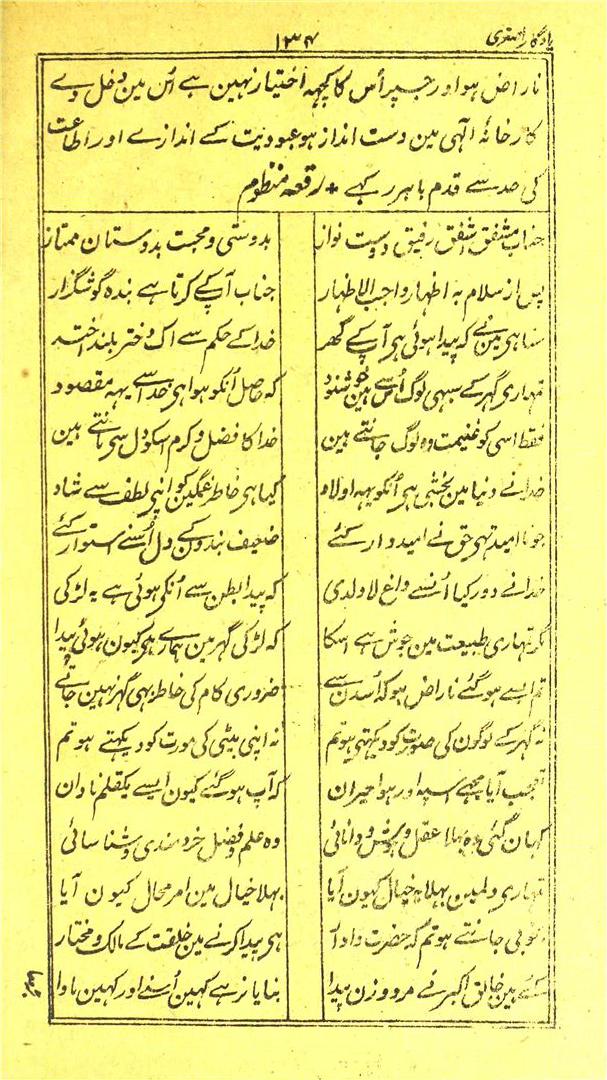 یادگار اصغری
۱۳۴
ناراض ہو اور جسپر اُس کا کچہہ اختیار نہین ہے اُس مین دخل دے
کارخانۂ الٰہی مین دست انداز ہو عبودیت کے اندازے اور اطاعت
کی حد سے قدم باہر رکہے + رقعہ منظوم
جناب مشفق اشفق رفیق دوست نواز بدوستی و محبت بدوستان ممتاز
پس از سلام بہ اظہار واجب الاظہار جناب آپکے کرتا ہے بندہ گوشگزار
سنا ہی مین نے کہ پیدا ہوئی ہی آپکے گھر خدا کے حکم سے اک دختر بلند اختر
تمہاری گہر کے سبہی لوگ اُس سے ہین خوشنود کہ حاصل اُنکو ہوا ہی خدا سے یہہ مقصود
فقط اسی کو غنیمت وہ لوگ جانتے ہین خدا کا فضل و کرم اسکو دل سی مانتے ہین
خدا نے دنیا مین بخشی ہی اُنکو یہہ اولاد کیا ہی خاطر غمگین کو اپنی لطف سے شاد
جو نا امید تہی حق نے امیدوار کئے ضعیف بندون کے دل اُسنے استوار کئے
خدا نے دور کیا اُنسے داغ لاولدی کہ پیدا بطن سے اُنکی ہوئی ہے یہ لڑکی
مگر تمہاری طبیعت مین جوش ہے اسکا کہ لڑکی گہر مین ہمارے ہی کیون ہوئی پیدا
تم ایسے ہو گئے ناراض ہو کہ اُسدن سے ضروری کام کی خاطر بہی گہر نہین جاتے
نہ گہر کے لوگون کی صورت کو دیکہتی ہو تم نہ اپنی بیٹی کی مورت کو دیکہتے ہو تم
تعجب آیا مجہے اسپہ اور ہوا حیران کہ آپ ہو گئے کیون ایسے یکقلم نادان
کہان گئی وہ بہلا عقل و ہوش و دانائی وہ علم و فضل خردمندی و شناسائی
تمہاری دلمین بہلا یہ خیال کیون آیا بہلا خیال مین امر محال کیون آیا
بخوبی جانتے ہو تم کہ حضرت دادار ہی پیدا کرنے مین خلقت کے مالک و مختار
کئے ہین خالق اکبر نے مرد و زن پیدا بنایا نر ہے کہین اُسنے اور کہین مادا